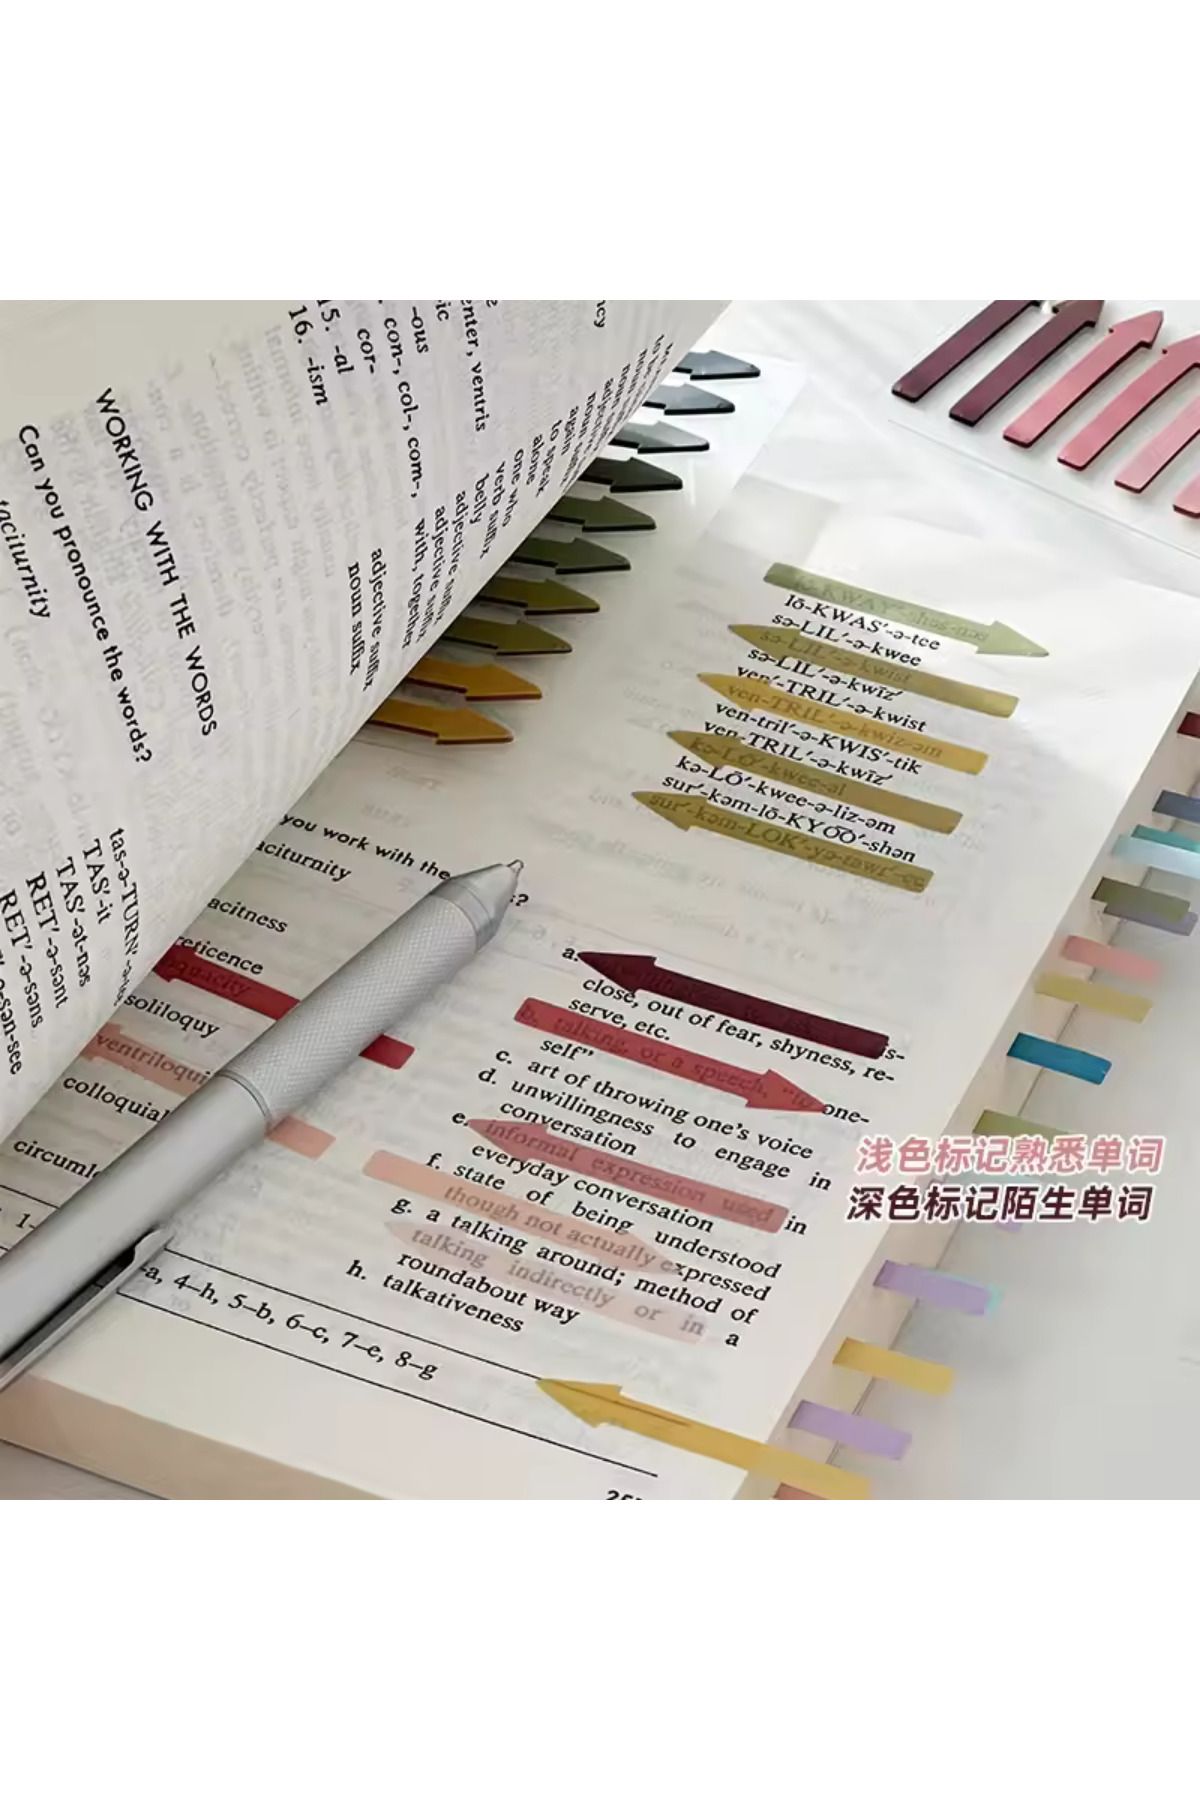 16. -ism
15. -al
cor-
con-, col-, com-,
-ous
-ic
enter, ventris
noun suffix
adjective suffix
with, together
adjective suffix
adjective suffix
belly
verb suffix
one who
alone
to speak
again
WORKING WITH THE WORDS
Can you pronounce the words?
taciturnity
tas-ə-TURN′-ə-tee
TAS′-it
TAS′-ət-nəs
RET′-ə-sənt
RET′-ə-səns
lō-KWAS′-ə-tee
sə-LIL′-ə-kwee
sə-LIL′-ə-kwist
sə-LIL′-ə-kwīz′
ven′-TRIL′-ə-kwist
ven-TRIL′-ə-kwiz-əm
ven-tril′-ə-KWIS′-tik
ven-TRIL′-ə-kwīz′
kə-LŌ′-kwee-əl
kə-LŌ′-kwee-ə-liz-əm
sur′-kəm-lō-KYO͞O′-shən
sur′-kəm-LOK′-yə-tawr′-ee
you work with the
s?
aciturnity
acitness
reticence
soliloquy
ventriloqui
colloquial
circumlo
a.
close, out of fear, shyness, re-
serve, etc.
b. talking, or a speech, "to one-
self"
c. art of throwing one's voice
d. unwillingness to engage in
conversation
e. informal expression used in
everyday conversation
f. state of being understood
though not actually expressed
g. a talking around; method of
talking indirectly or in a
roundabout way
h. talkativeness
1–
–a, 4–h, 5–b, 6–c, 7–e, 8–g
浅色标记熟悉单词
深色标记陌生单词